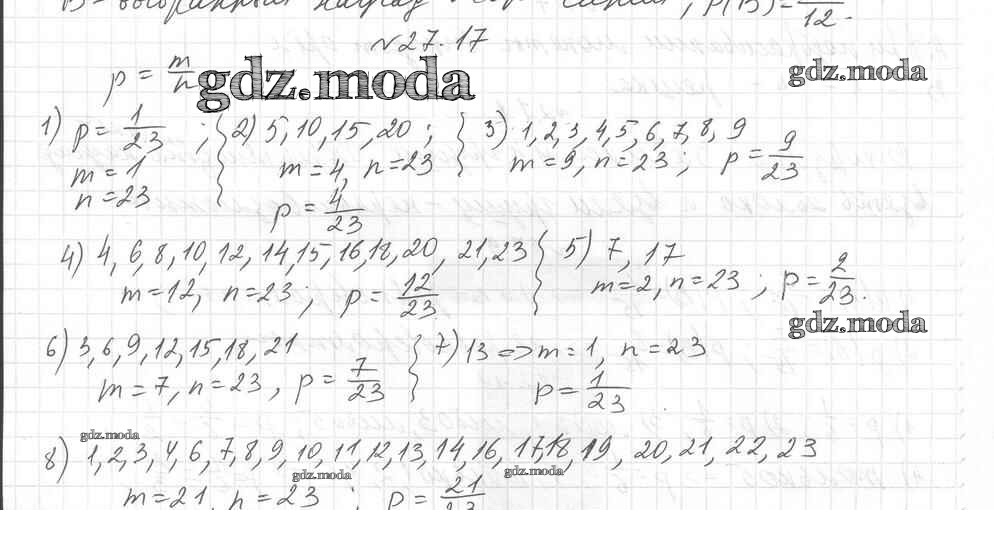 В - выбранный ; P(B) = /12.
№27.17
p = m/n
gdz.moda
gdz.moda
1) p = 1/23 ;
m = 1
n = 23
2) 5, 10, 15, 20 ;
m = 4, n = 23
p = 4/23
3) 1, 2, 3, 4, 5, 6, 7, 8, 9
m = 9, n = 23 ; p = 9/23
4) 4, 6, 8, 10, 12, 14, 15, 16, 18, 20, 21, 23
m = 12, n = 23 ; p = 12/23
5) 7, 17
m = 2, n = 23 ; p = 2/23.
gdz.moda
6) 3, 6, 9, 12, 15, 18, 21
m = 7, n = 23, p = 7/23
7) 13 => m = 1, n = 23
p = 1/23
gdz.moda
8) 1, 2, 3, 4, 6, 7, 8, 9, 10, 11, 12, 13, 14, 16, 17, 18, 19, 20, 21, 22, 23
gdz.moda
gdz.moda
m = 21, n = 23 ; p = 21/23